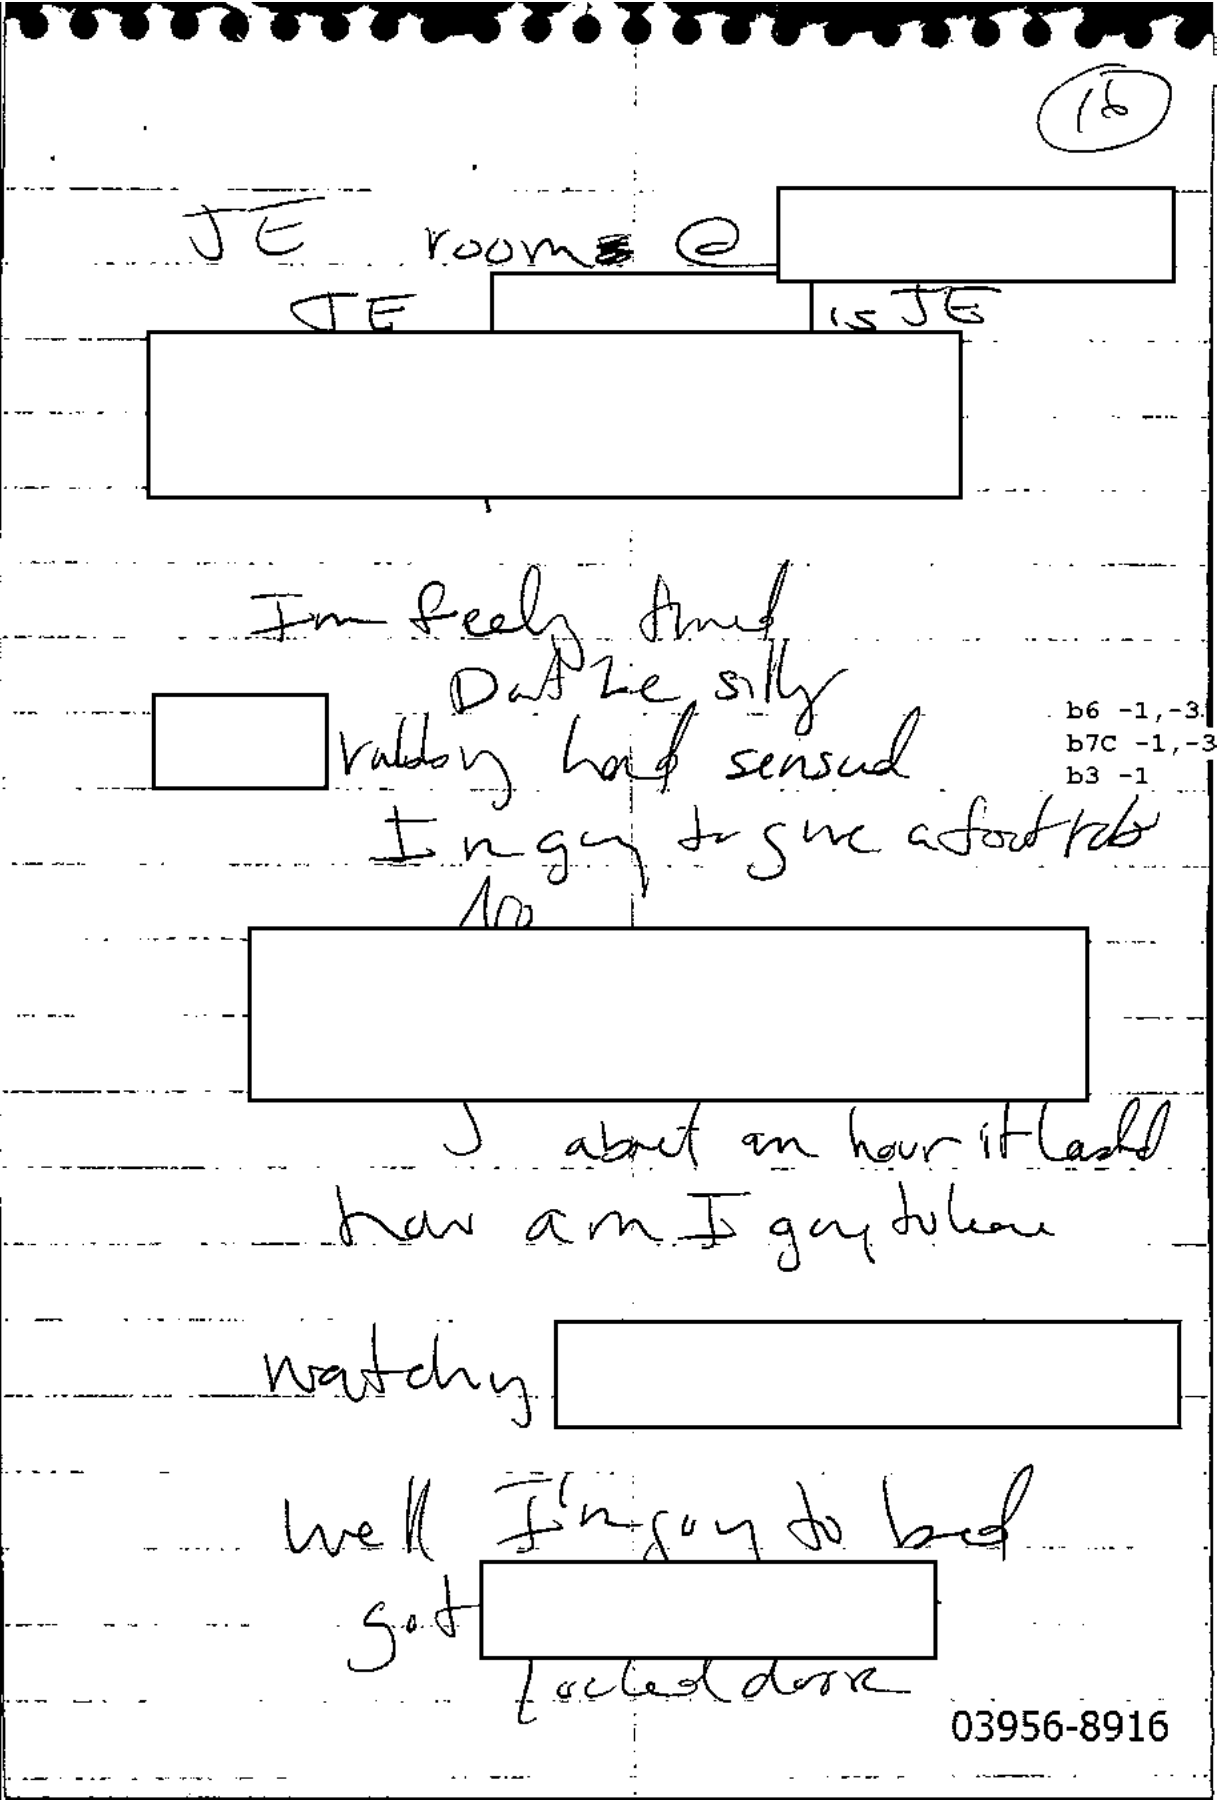 16
JE rooms @
JE is JE
I'm feeling tired
Don't be silly
rubbing hand sensual
I'm going to give a foot rub
about an hour it lasted
how am I going to leave
watching
b6 -1,-3
b7C -1,-3
b3 -1
well I'm going to bed
got
locked door
03956-8916